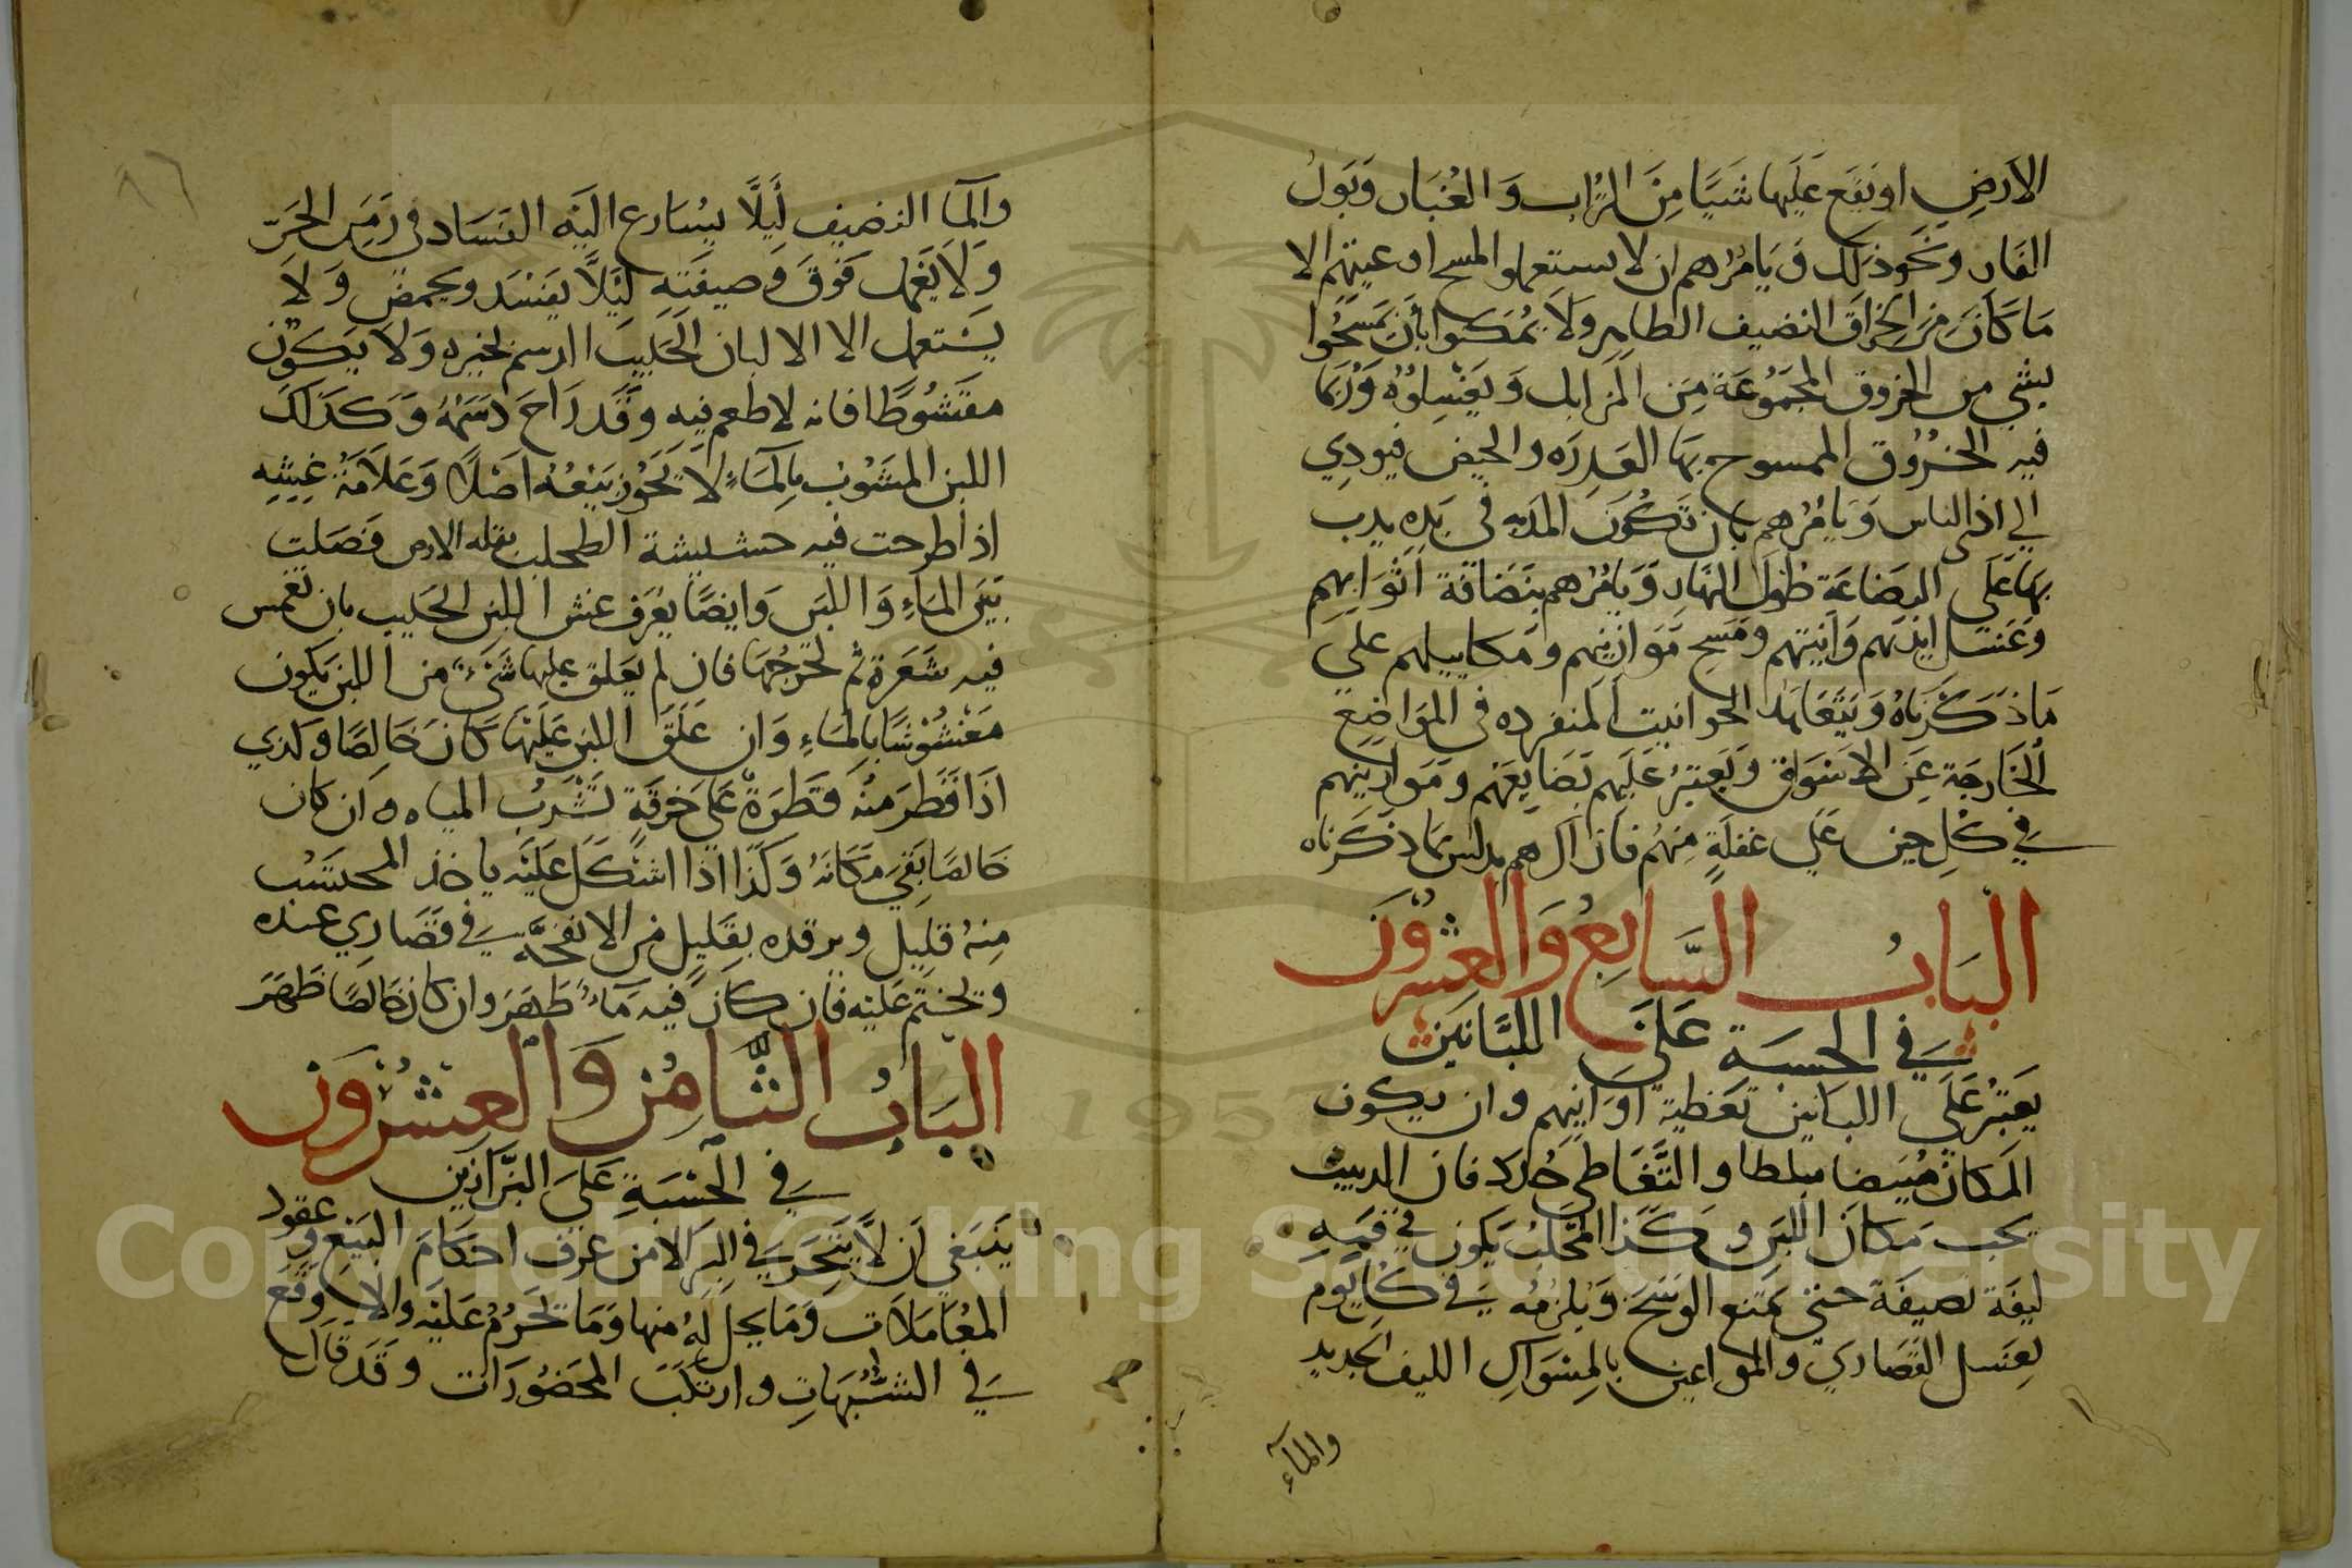 الارض او نقع عليها شيا من التراب والغبار وبول
الفار ونحو ذلك ويامرهم ان لا يستعملوا لمسح اوعيتهم الا
ما كان من الخراق النضيف الطاهر ولا يمكنوا بأن يمسحوا
بشي من الخروق المجموعة من المزابل ويغسلوه وربما
فيه الخروق الممسوح بها العدره والحيض فيودي
الي اذا الناس ويامرهم بان تكون المدبه في يده يدب
بها على البضاعة طول النهار ويامرهم بنضافة اثوابهم
وغسل ايديهم وانيتهم ومسح موازينهم ومكاييلهم على
ما ذكرناه ويتعاهد الحوانيت المنفرده في المواضع
الخارجة عن الاسواق ويعتبر عليهم بضايعهم وموازينهم
في كل حين على غفلة منهم فان هم بما ذكرناه
الباب السابع والعشرون
في الحسبة على اللبانين
يعتبر على اللبانين تغطية اوانيهم وان يكون
المكان مبيضا مبلطا والتغاطي جدد فان الدبيب
يحب مكان اللبن وكذا المحلب يكون في فمه
ليفة نصيفة حتى تمنع الوسخ ويلزمه في كل يوم
بغسل القصاري والمواعين بالمسواك الليف الجديد
والماء
والما النضيف ليلا يسارع اليه الفساد في زمن الحر
ولا يغمل فوق وصيفته ليلا يفسد ويحمض ولا
يستعمل الا الالبان الحليب الدسم لخيره ولا يكون
مقشوطا فانه لا طعم فيه وقد راح دسمه وكذلك
اللبن المشوب بالماء لا يجوز بيعه اصلا وعلامة غشه
اذا طرحت فيه حشيشة الطحلب فصلت
بين الماء واللبن وايضا يعرف غش اللبن الحليب بان تغمس
فيه شعرة ثم تخرجها فان لم يعلق عليها شيء من اللبن يكون
مغشوشا بالماء وان علق اللبن عليها كان خالصا وكذي
اذا قطر منه قطرة على خرقة تشرب المياه وان كان
خالصا بقي مكانه وكذا اذا اشكل عليه ياخذ المحتسب
منه قليل ويرقده بقليل من الانفحة في قصاري عنده
ويختم عليه فان كان فيه ماء ظهر وان كان خالصا ظهر
الباب الثامن والعشرون
في الحسبة على البزازين
ينبغي ان لا يتجر في البز الا من عرف احكام البيع وعقود
المعاملات وما يحل له منها وما تحرم عليه والا وقع
في الشبهات وارتكب المحضورات وقد قال